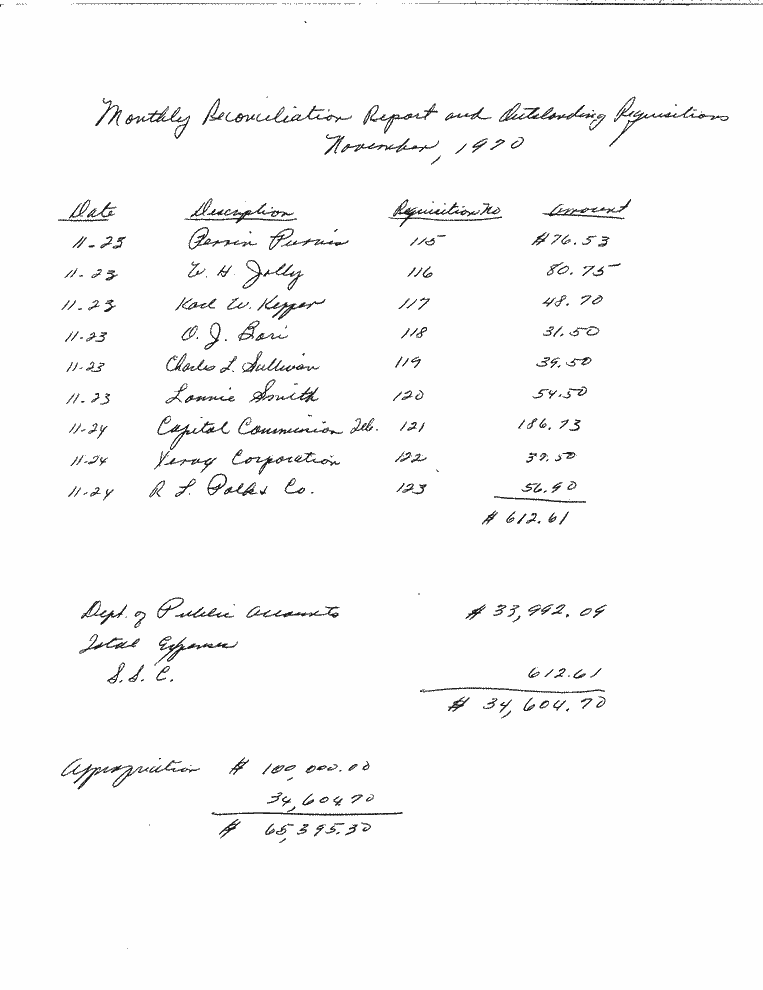 Monthly Reconciliation Report and Outstanding Requisitions
November, 1970
Date Description Requisition No Amount
11-23 Perrin Purvis 115 $76.53
11-23 W. H. Jolly 116 80.75
11-23 Karl W. Kepper 117 48.70
11-23 O. J. Bori 118 31.50
11-23 Charles L. Sullivan 119 39.50
11-23 Lonnie Smith 120 54.50
11-24 Capitol Commission 121 186.73
11-24 Xerox Corporation 122 37.50
11-24 R L. Polk & Co. 123 56.90
$ 612.61
Dept. of Public Accounts $ 33,992.09
Total Expenses
S.S.C. 612.61
$ 34,604.70
Appropriation $ 100,000.00
34,604.70
$ 65,395.30